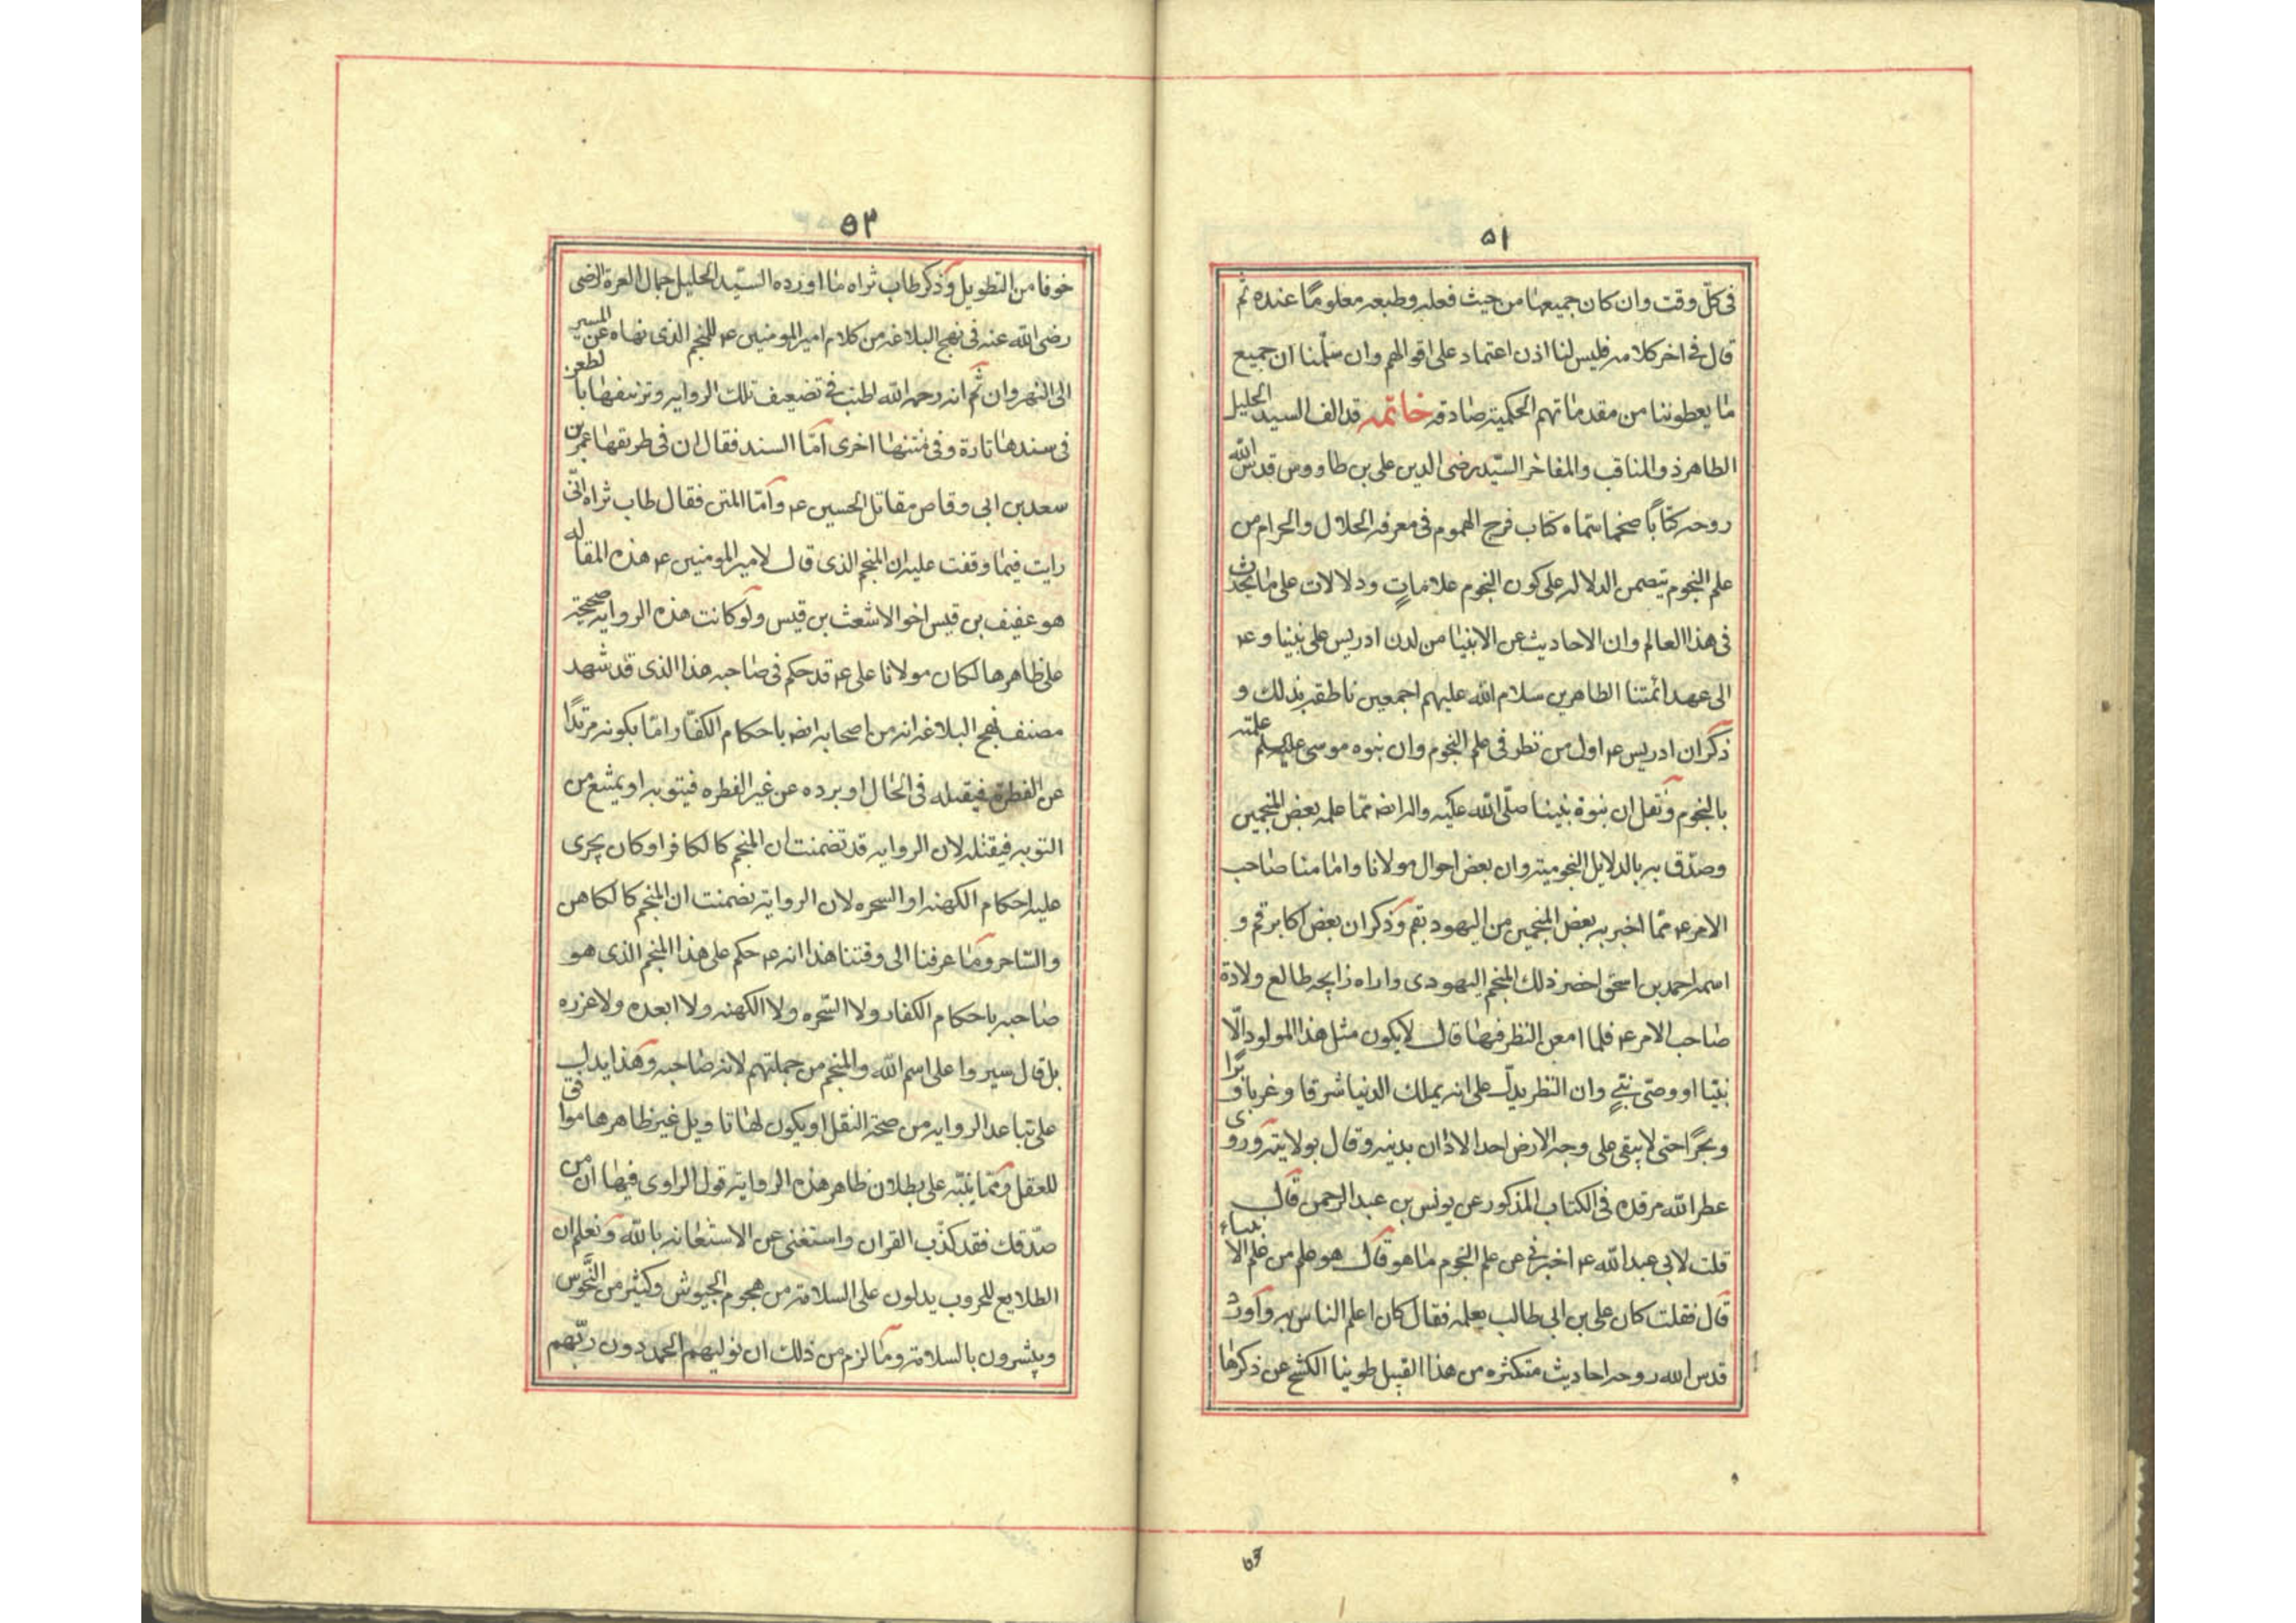 ٥١
فى كلّ وقت وان كان جميعها من حيث فعله وطبعه معلومًا عنده ثم
قال فى اخر كلامه فليس لنا اذن اعتماد على اقوالهم وان سلّمنا ان جميع
ما يعطوننا من مقدماتهم الحكمية صادقه خاتمه قد الف السيد الجليل
الطاهر ذو المناقب والمفاخر السيّد رضى الدين على بن طاووس قدس الله
روحه كتابًا ضخما سماه كتاب فرج الهموم فى معرفه الحلال والحرام من
علم النجوم يتضمن الدلاله على كون النجوم علاماتٍ ودلالات على ما يحدث
فى هذا العالم وان الاحاديث عن الانبيا من لدن ادريس على نبينا و ع
الى عهد ائمتنا الطاهرين سلام الله عليهم اجمعين ناطقه بذلك و
ذكر ان ادريس ع اول من نظر فى علم النجوم وان نبوه موسى ع علمت
بالنجوم ونقل ان نبوة نبينا صلّى الله عليه واله ايضا ممّا علمه بعض المنجمين
وصدّق به بالدلايل النجوميه وان بعض احوال مولانا وامامنا صاحب
الامر ع ممّا اخبر به بعض المنجمين من اليهود بقم وذكر ان بعض اكابر قم و
اسمه احمد بن اسحق احضر ذلك المنجم اليهودى واراه زايجه طالع ولادة
صاحب الامر ع فلما امعن النظر فيها قال لا يكون مثل هذا المولود الّا
نبيّا او وصى نبىٍ وان النظر يدلّ على انه يملك الدنيا شرقا وغربا وبرًا
وبحرًا حتى لا يبقى على وجه الارض احد الا دان بدينه وقال بولايته وروى
عطر الله مرقده فى الكتاب المذكور عن يونس بن عبد الرحمن قال
قلت لابى عبد الله ع اخبرنى عن علم النجوم ما هو قال هو علم من علم الانبياء
قال فقلت كان على بن ابى طالب يعلمه فقال كان اعلم الناس به واورد
قدس الله روحه احاديث متكثره من هذا القبيل طوينا الكشح عن ذكرها
٥٣
خوفا من التطويل وذكر طاب ثراه ما اورده السيّد الجليل جمال العترة الرضى
رضى الله عنه فى نهج البلاغه من كلام امير المومنين ع للمنجم الذى نهاه عن المسير
الى النهروان ثم انه رحمه الله اطنب فى تضعيف تلك الروايه وتزييفها بالطعن
فى سندها تارة وفى متنها اخرى امّا السند فقال ان فى طريقها عمر بن
سعد بن ابى وقاص مقاتل الحسين ع وامّا المتن فقال طاب ثراه انّى
رايت فيما وقفت عليه ان المنجم الذى قال لامير المومنين ع هذه المقاله
هو عفيف بن قيس اخو الاشعث بن قيس ولو كانت هذه الروايه صحيحة
على ظاهرها لكان مولانا على ع قد حكم فى صاحبه هذا الذى قد شهد
مصنف نهج البلاغه انه من اصحابه ايضا باحكام الكفّار امّا بكونه مرتدًا
عن الفطرة فيقتله فى الحال او برده عن غير الفطره فيتوبه او يمتنع من
التوبه فيقتله لان الروايه قد تضمنت ان المنجم كالكافر او كان يجرى
عليه احكام الكهنه او السحره لان الروايه تضمنت ان المنجم كالكاهن
والساحر وما عرفنا الى وقتنا هذا انه ع حكم على هذا المنجم الذى هو
صاحبه باحكام الكفار ولا السّحره ولا الكهنه ولا ابعده ولا عزره
بل قال سيروا على اسم الله والمنجم من جملتهم لانه صاحبه وهذا يدل
على تباعد الروايه من صحة النقل او يكون لها تاويل غير ظاهرها موافق
للعقل وممّا ينبّه على بطلان ظاهر هذه الروايه قول الراوى فيها ان من
صدّقك فقد كذّب القران واستغنى عن الاستعانه بالله ونعلم ان
الطلايع للحروب يدلون على السلامة من هجوم الجيوش وكثير من النّحوس
ويبشرون بالسلامة وما لزم من ذلك ان نوليهم الحمد دون ربّهم